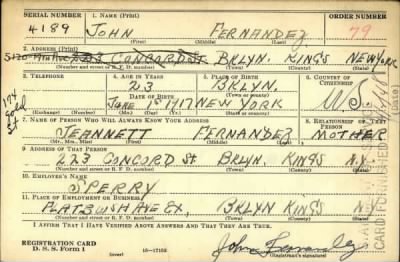 SERIAL NUMBER 1. NAME (Print) ORDER NUMBER
4189 JOHN FERNANDEZ 79
(First) (Middle) (Last)
2. ADDRESS (Print)
223 CONCORD ST BKLYN. KINGS NEW YORK
(Number and street or R. F. D. number) (Town) (County) (State)
3. TELEPHONE 4. AGE IN YEARS 5. PLACE OF BIRTH 6. COUNTRY OF CITIZENSHIP
23 BKLYN.
DATE OF BIRTH (Town or county)
JUNE 1ST 1917 NEW YORK U.S.
(Exchange) (Number) (Mo.) (Day) (Yr.) (State or country)
174
Gold
St
7. NAME OF PERSON WHO WILL ALWAYS KNOW YOUR ADDRESS 8. RELATIONSHIP OF THAT PERSON
JEANNETT FERNANDEZ MOTHER
(Mr., Mrs., Miss) (First) (Middle) (Last)
9. ADDRESS OF THAT PERSON
223 CONCORD ST BKLYN. KINGS N.Y.
(Number and street or R. F. D. number) (Town) (County) (State)
10. EMPLOYER'S NAME
SPERRY
11. PLACE OF EMPLOYMENT OR BUSINESS
FLATBUSH AVE EX, BKLYN KINGS N.Y.
(Number and street or R. F. D. number) (Town) (County) (State)
I AFFIRM THAT I HAVE VERIFIED ABOVE ANSWERS AND THAT THEY ARE TRUE.
REGISTRATION CARD
D. S. S. Form 1 (over) 16—17105 John Fernandez
(Registrant's signature)